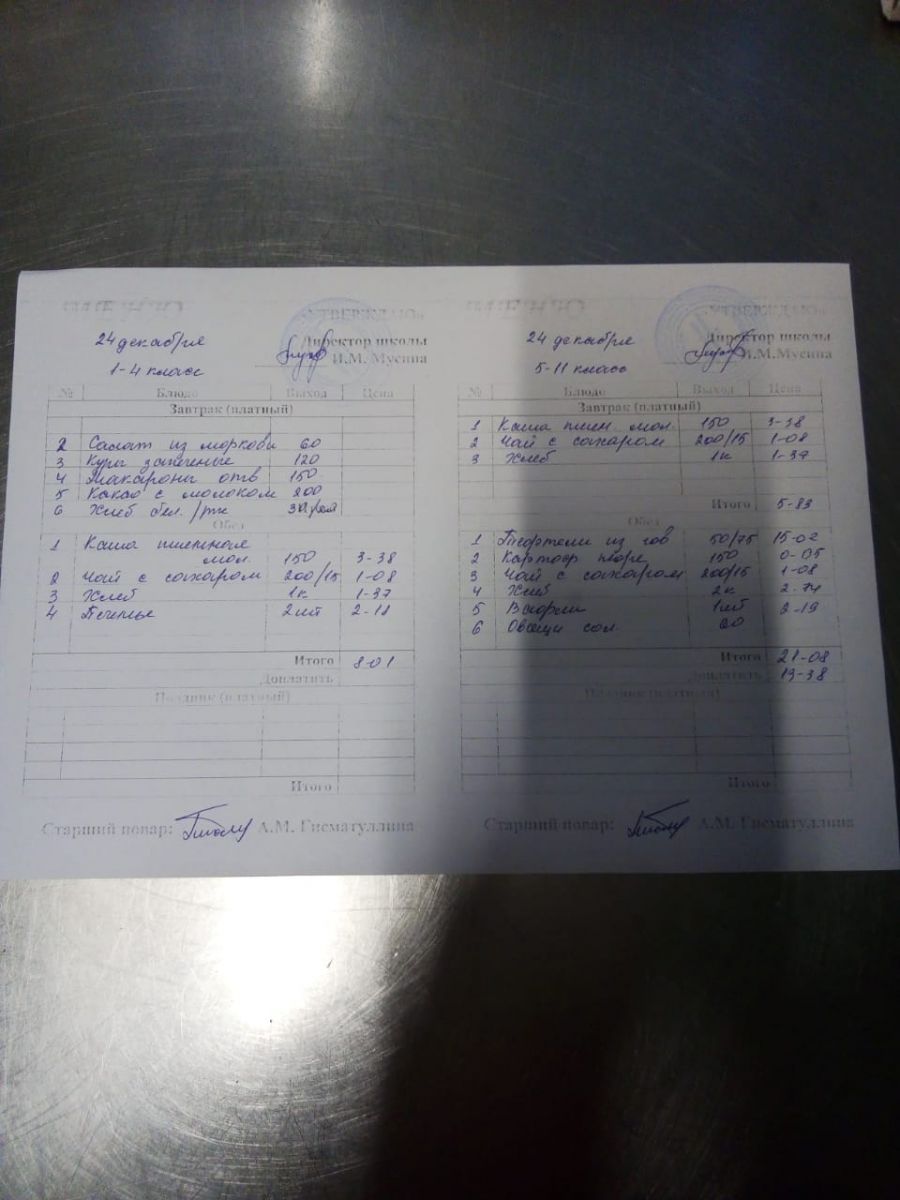 МЕНЮ «УТВЕРЖДАЮ»
24 декабря Директор школы
И.М. Мусина
1-4 класс
№ Блюдо Выход Цена
Завтрак (платный)
2 Салат из моркови 60
3 Куры запеченые 120
4 Макароны отв 150
5 Какао с молоком 200
6 Хлеб бел. /рж
Обед
1 Каша пшенная
мол. 150 3-38
2 Чай с сахаром 200/15 1-08
3 Хлеб 1к 1-37
4 Печенье 2шт 2-18
Итого 8-01
Доплатить
Полдник (платный)
Итого
Старший повар: А.М. Гисматуллина
МЕНЮ «УТВЕРЖДАЮ»
24 декабря Директор школы
И.М.Мусина
5-11 класс
№ Блюдо Выход Цена
Завтрак (платный)
1 Каша пшен. мол. 150 3-38
2 Чай с сахаром 200/15 1-08
3 Хлеб 1к 1-37
Итого 5-83
Обед
1 Тефтели из гов 50/75 15-02
2 Картоф пюре 150 0-05
3 Чай с сахаром 200/15 1-08
4 Хлеб 2к 2-74
5 Вафли 1шт 2-19
6 Овощи сол. 60
Итого 21-08
Доплатить 19-38
Полдник (платный)
Итого
Старший повар: А.М. Гисматуллина